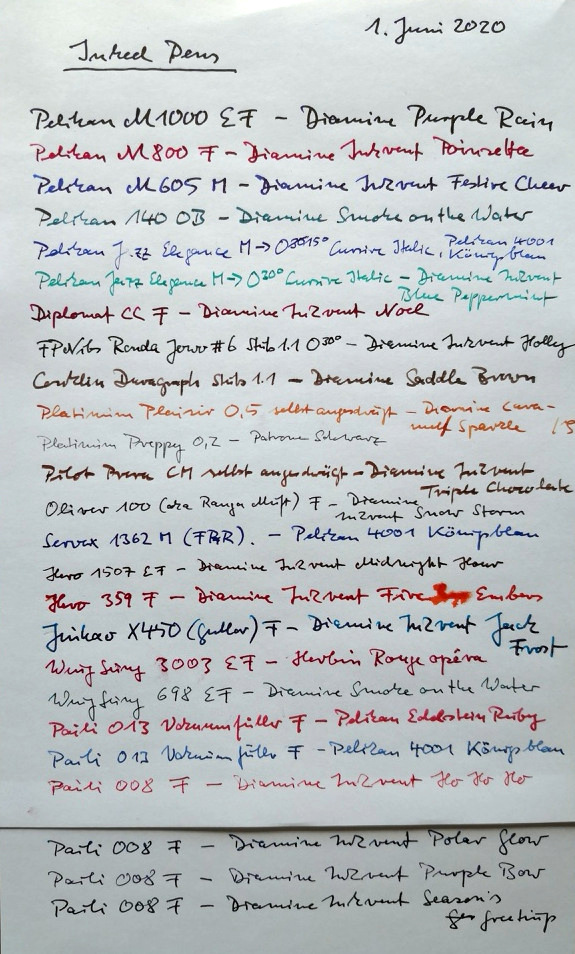 1. Juni 2020
Inked Pens
Pelikan M1000 EF – Diamine Purple Rain
Pelikan M800 F – Diamine Inkvent Poinsettia
Pelikan M605 M – Diamine Inkvent Festive Cheer
Pelikan 140 OB – Diamine Smoke on the Water
Pelikan Jazz Elegance M → O30°15° Cursive Italic, Pelikan 4001
Königsblau
Pelikan Jazz Elegance M → O30° Cursive Italic – Diamine Inkvent
Blue Peppermint
Diplomat CC F – Diamine Inkvent Noel
FPNibs Ranga Jowo #6 Stub 1.1 O30° – Diamine Inkvent Holly
Conklin Duragraph Stub 1.1 – Diamine Saddle Brown
Platinum Plaisir 0,5 selbst angeschrägt – Diamine Cara-
mel Sparkle
Platinum Preppy 0,2 – Patrone Schwarz
Pilot Prera CM selbst angeschrägt – Diamine Inkvent
Triple Chocolate
Oliver 100 (aka Ranga Mufti) F – Diamine
Inkvent Snow Storm
Servex 1362 M (FPR). – Pelikan 4001 Königsblau
Hero 1507 EF – Diamine Inkvent Midnight Hour
Hero 359 F – Diamine Inkvent Fire Embers
Jinhao X450 (Gullor) F – Diamine Inkvent Jack
Frost
Wing Sung 3003 EF – Herbin Rouge opéra
Wing Sung 698 EF – Diamine Smoke on the Water
Paili 013 Vakuumfüller F – Pelikan Edelstein Ruby
Paili 013 Vakuumfüller F – Pelikan 4001 Königsblau
Paili 008 F – Diamine Inkvent Ho Ho Ho
Paili 008 F – Diamine Inkvent Polar Glow
Paili 008 F – Diamine Inkvent Purple Bow
Paili 008 F – Diamine Inkvent Season's
Greetings